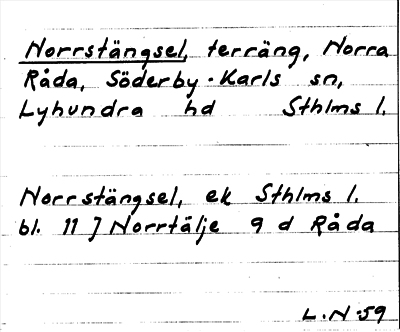 Norrstängsel, terräng, Norra
Råda, Söderby-Karls sn,
Lyhundra hd Sthlms l.
Norrstängsel, ek Sthlms l.
bl. 11 } Norrtälje 9 d Råda
L.N-59